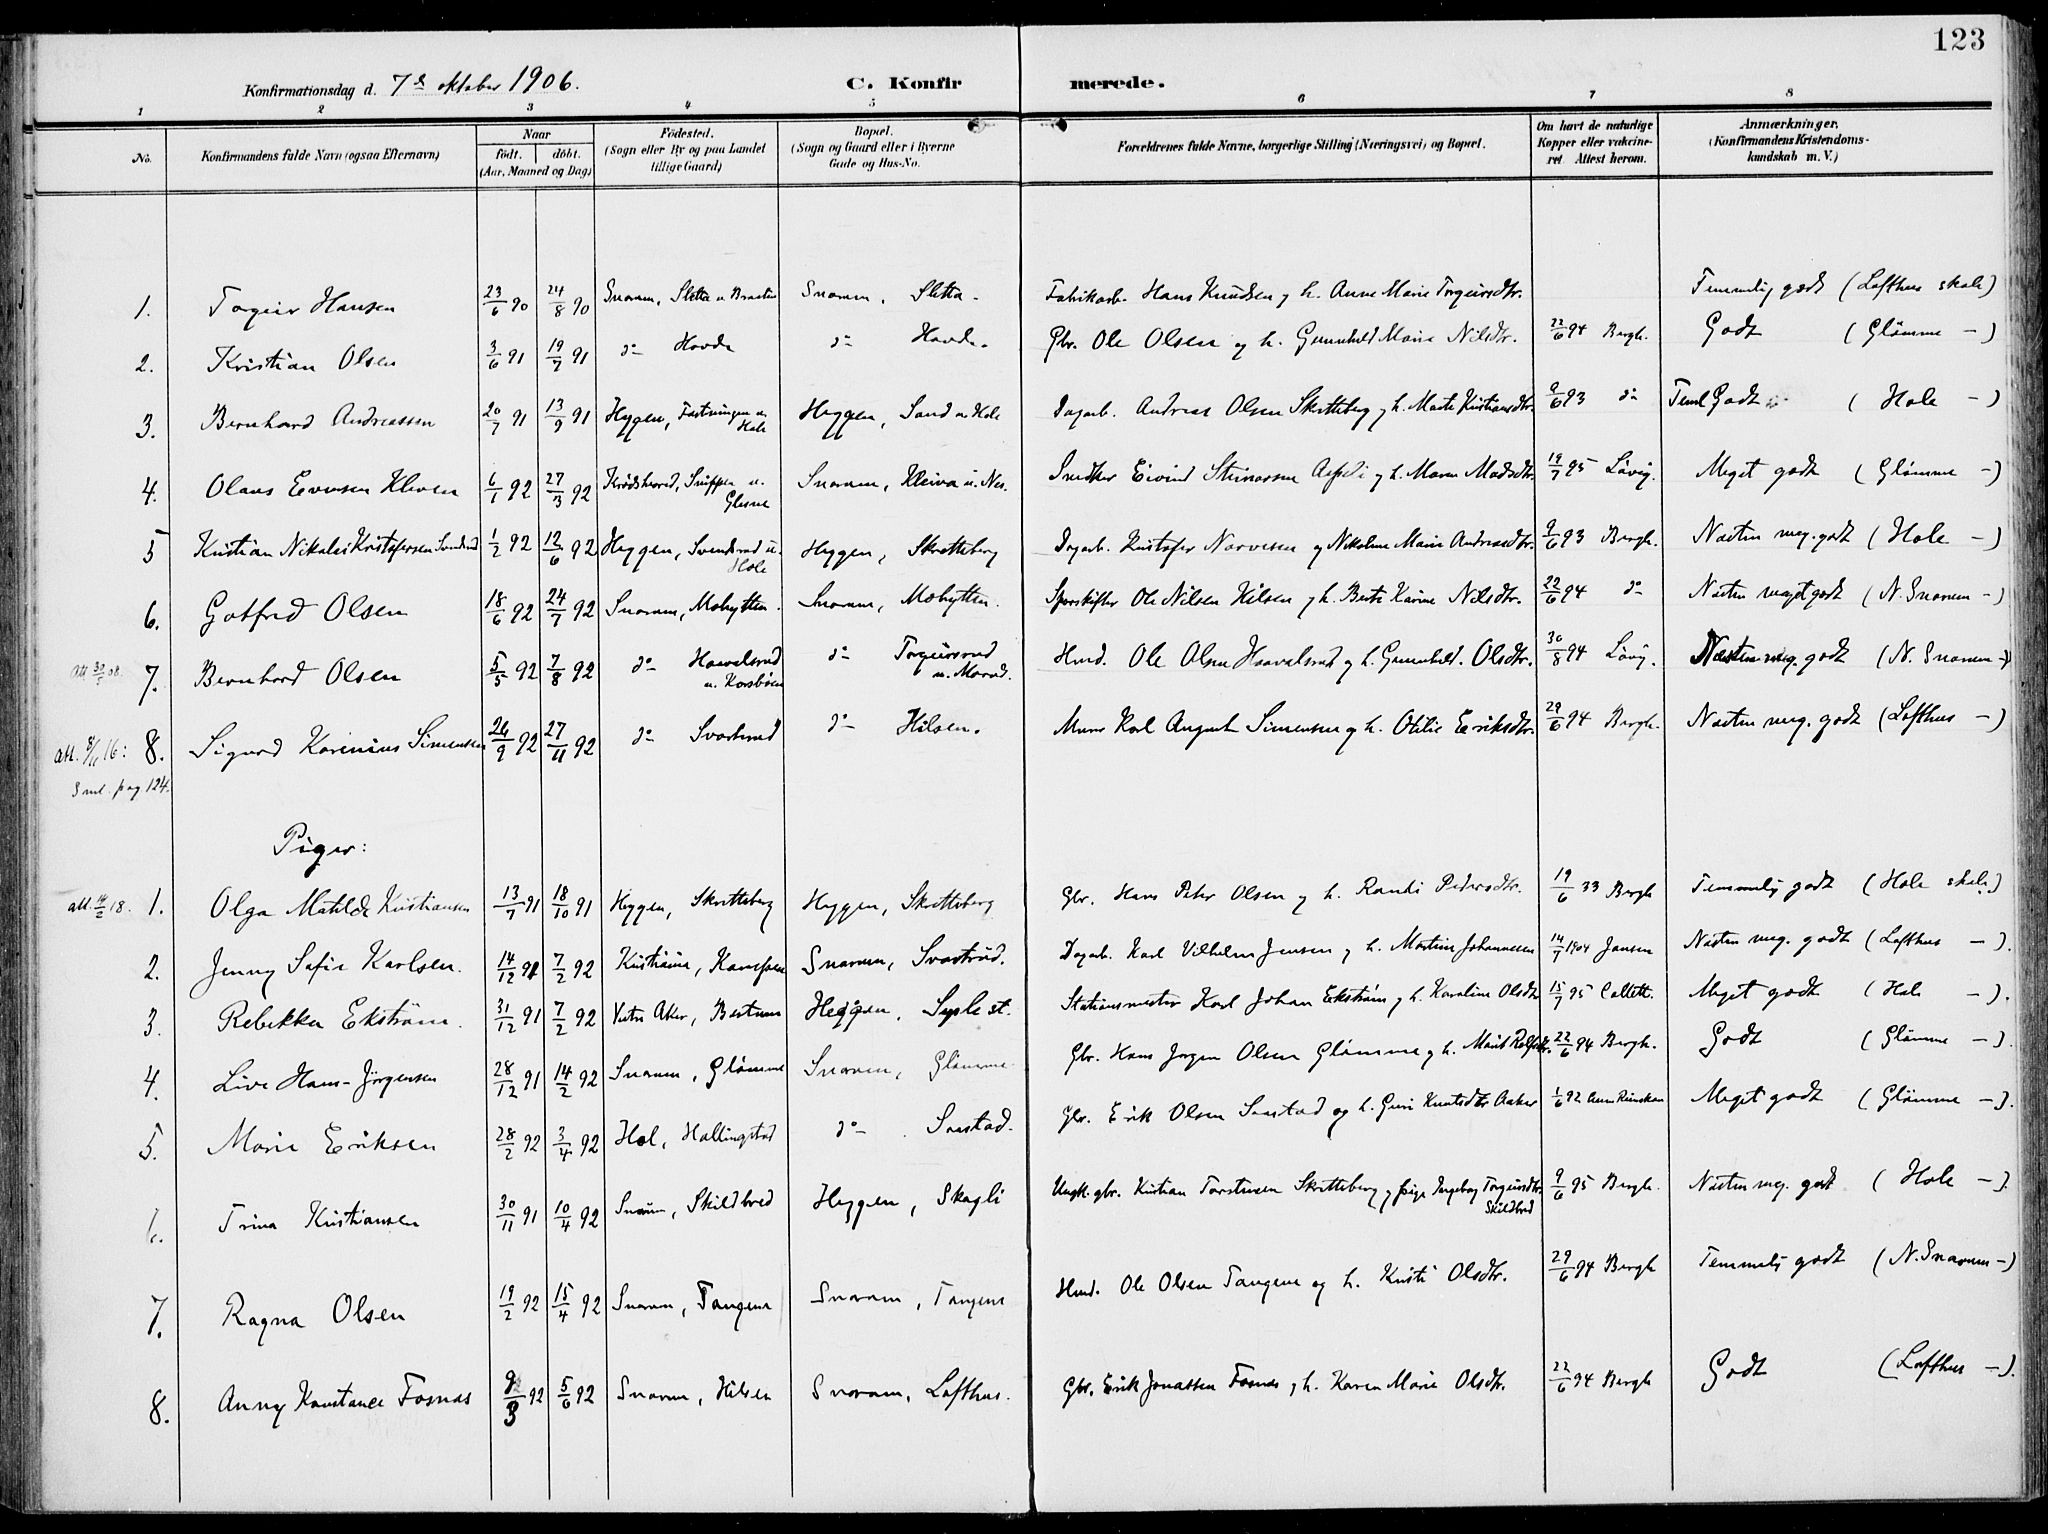 123
Konfirmationsdag d. 7de oktober 1906.
C. Konfirmerede.
1 2 3 4 5 6 7 8
No.
Konfirmandens fulde Navn (ogsaa Efternavn)
Naar
födt. döbt.
(Aar, Maaned og Dag)
Födested.
(Sogn eller By og paa Landet
tillige Gaard)
Bopæl.
(Sogn og Gaard eller i Byerne
Gade og Hus-No.
Forældrenes fulde Navne, borgerlige Stilling (Næringsvei) og Bopæl.
Om havt de naturlige
Kopper eller vakcine-
ret Attest herom.
Anmærkninger.
(Konfirmandens Kristendoms-
kundskab m. V.)
1. Torgeir Hansen 23/6 90 24/8 90 Snarum, Sletta u. Braaten Snarum, Sletta. Fabrikarb. Hans Knudsen og h. Anne Marie Torgeirsdtr. Temmelig godt (Lofthus skole)
2. Kristian Olsen 3/6 91 19/7 91 do Hovde do Hovde. Gbr. Ole Olsen og h. Gunnhild Marie Nilsdtr. 22/6 94 Bergh. Godt (Glømme -)
3. Bernhard Andreassen 20/7 91 13/9 91 Heggen, u. Hole Heggen, Sand u. Hole Dagarb. Andreas Olsen Skretteberg og h. Marte Kristiansdtr. 9/6 93 do Teml. Godt (Hole -)
4. Olaus Evensen Kleven 6/1 92 27/3 92 Krødsherred, u. Glesne Snarum, Kleiva u. Nes. Snedker Eivind og h. Maren Madsdtr. 19/7 95 Løvig. Meget godt (Glømme -)
5 Kristian Nikolai Kristofersen Svendsrud 1/2 92 12/6 92 Heggen, Svendsrud u. Hole Heggen, Skretteberg Dagarb. Kristofer Narvesen og Nikoline Marie Andreasdtr. 9/6 93 Bergh. Næsten meg. godt (Hole -)
6. Gotfred Olsen 18/6 92 24/7 92 Snarum, Mohytten. Snarum, Mohytten. Sporskifter Ole Nilsen Hilsen og h. Berte Karine Nilsdtr. 22/6 94 do Næsten meget godt (N. Snarum -)
att 30/5 08. 7. Bernhard Olsen 5/5 92 7/8 92 do Haavalsrud u. Korsbøen do Torgeirsrud u. Morud. Hmd. Ole Olsen Haavalsrud og h. Gunnhild. Olsdtr. 30/8 94 Løvig. Næsten meg. godt (N. Snarum -)
att. 8/11 16: 8. Sigurd Karenius Simensen 24/9 92 27/11 92 do Svartrud do Hilsen. Murer Karl August Simensen og h. Otilie Eriksdtr. 29/6 94 Bergh. Næsten meg. godt (Lofthus -)
pag 124.
Piger:
att. 14/2 18. 1. Olga Matilde Kristiansen 13/7 91 18/10 91 Heggen, Skretteberg Heggen, Skretteberg Gbr. Hans Peter Olsen og h. Randi Pedersdtr. 19/6 33 Bergh Temmelig godt (Hole skole)
2. Jenny Sofie Karlsen. 14/12 91 7/2 92 Kristiania, Kampen Snarum, Svartrud. Dagarb. Karl Vilhelm Jensen og h. Martine Johannesen 14/7 1904 Jansen Næsten meg. godt (Lofthus -).
3. Rebekka Ekstrøm. 31/12 91 7/2 92 Vestre Aker, Bestum Heggen, Sysle st. Stationsmester Karl Johan Ekstrøm og h. Karoline Olsdtr 15/7 95 Collett. Meget godt (Hole -).
4. Live Hans-Jørgensen 28/12 91 14/2 92 Snarum, Glømme Snarum, Glømme. Gbr. Hans Jørgen Olsen Glømme og h. Marit Rolfsdtr. 22/6 94 Bergh. Godt (Glømme -).
5. Marie Eriksen 28/2 92 3/4 92 Hol, Hallingdal do Saastad. Gbr. Erik Olsen Saastad og h. Guri Knutsdtr Aaker 1/6 92 Meget godt (Glømme -).
6. Trina Kristiansen 30/11 91 10/4 92 Snarum, Skildbred Heggen, Skagli Ungk. gbr. Kristian Torstensen Skretteberg og pige Ingeborg Torgeirsdtr. Skildbred 9/6 95 Bergh. Næsten meg. godt (Hole -).
7. Ragna Olsen 19/2 92 15/4 92 Snarum, Tangene Snarum, Tangene Hmd. Ole Olsen Tangene og h. Kristi Olsdtr. 29/6 94 Bergh Temmelig godt (N. Snarum -)
8. Anny Konstance Fosnæs 9/3 92 5/6 92 Snarum, Hilsen Snarum, Lofthus. Gbr. Erik Jonassen Fosnæs og h. Karen Marie Olsdtr. 22/6 94 Bergh Godt (Lofthus -).